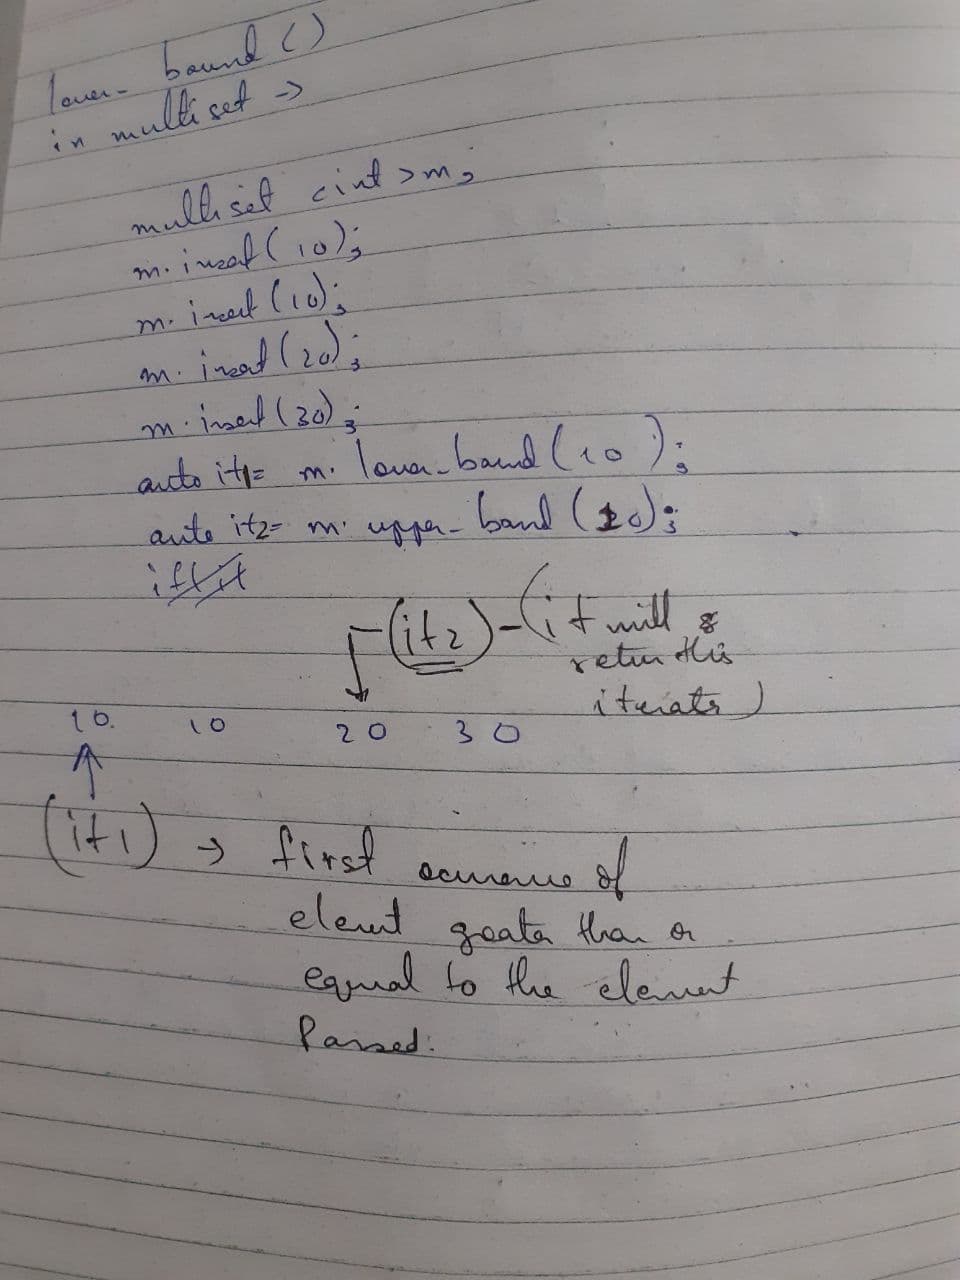 lower_bound ()
in multiset →
multiset <int> m;
m. insert (10);
m. insert (10);
m. insert (20);
m. insert (30);
auto it1= m. lower_bound (10);
auto it2= m. upper_bound (10);
(it2) - (it will
return this
iterator)
10. 10 20 30
(it1) → first occurence of
element greater than or
equal to the element
Passed.